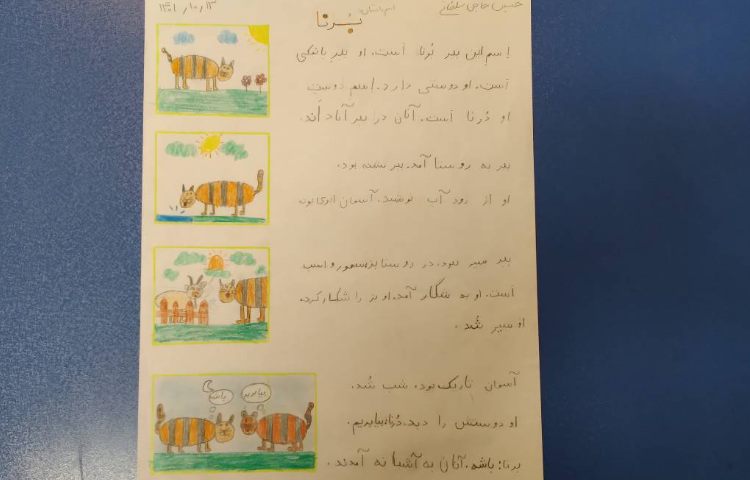 حسین حاجی سلطانی
اسم داستان:
۱۴۰۱/۱۰/۱۳
بُرنا
اسم این ببر بُرنا است. او ببر با نمکی
است. او دوستی دارد. اسم دوست
او دُرنا است. آنان در ببر آباد اَند.
ببر به روستا آمد. ببر تشنه بود.
او از رود آب نوشید. آسمان ابری بود
ببر سیر نبود. در روستا بز
است. او به شکار آمد. او بز را شکار کرد.
او سیر شُد.
آسمان تاریک بود. شب شُد.
او دوستش را دید. دُرنا: بیا بریم.
برنا: باشه. آنان به آشیانه آمدند.
باشه
بیا بریم